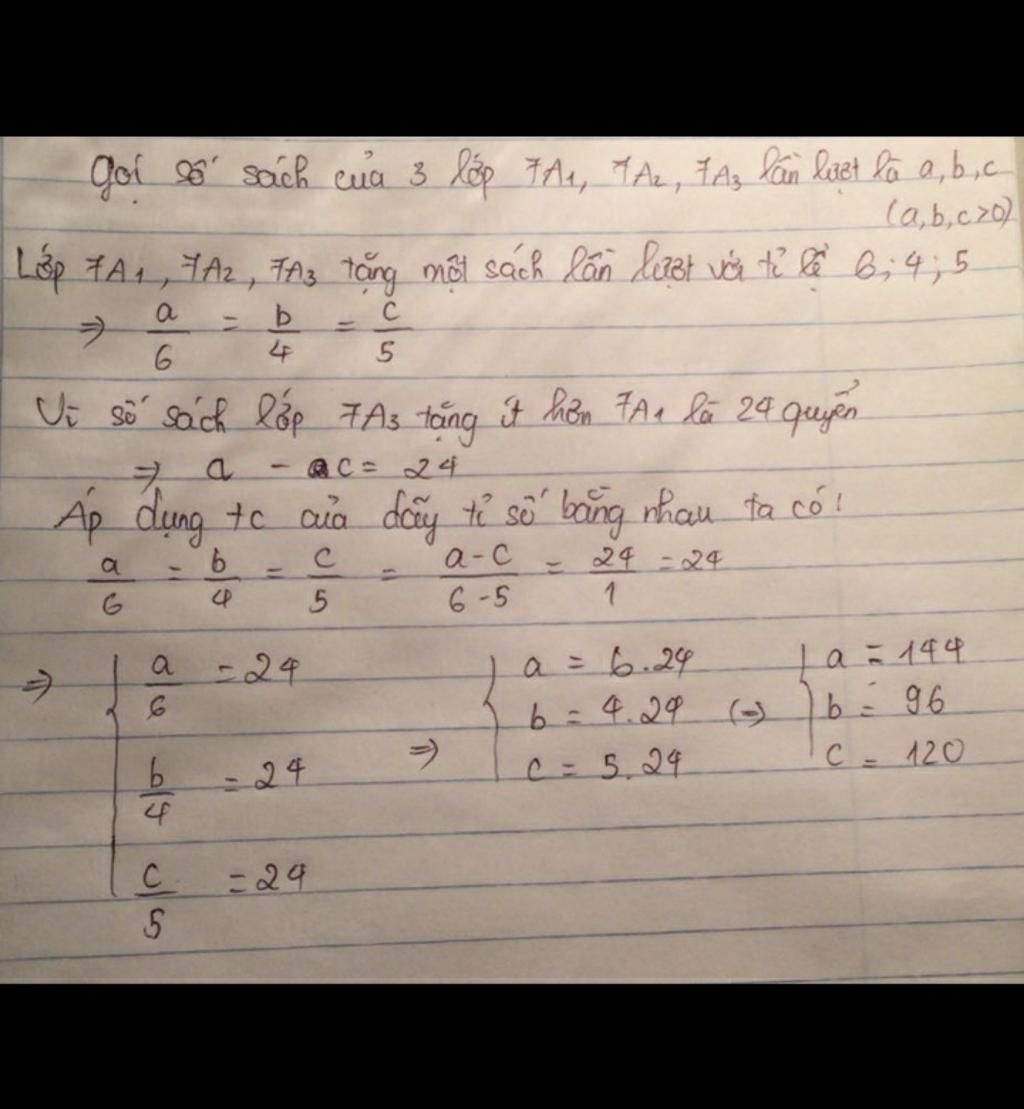 gọi số sách của 3 lớp 7A1, 7A2, 7A3 lần lượt là a, b, c
(a, b, c > 0)
Lớp 7A1, 7A2, 7A3 tặng một sách lần lượt với tỉ lệ 6; 4; 5
=> a/6 = b/4 = c/5
Vì số sách lớp 7A3 tặng ít hơn 7A1 là 24 quyển
=> a - c = 24
Áp dụng tc của dãy tỉ số bằng nhau ta có!
a/6 = b/4 = c/5 = a-c/6-5 = 24/1 = 24
=> a/6 = 24 => a = 6.24 (=> a = 144
b/4 = 24 b = 4.24 b = 96
c/5 = 24 c = 5.24 c = 120